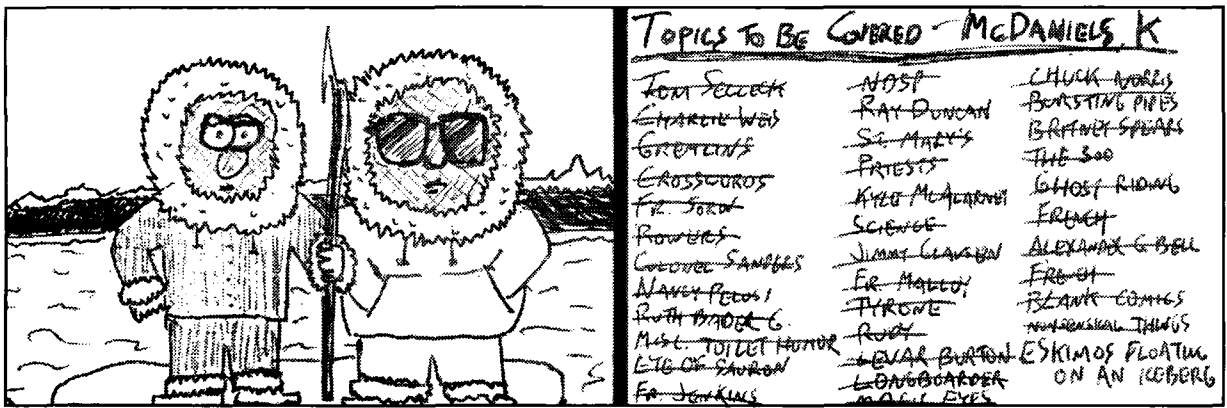 TOPICS TO BE COVERED - McDANIELS, K
TOM SELLECK
CHARLIE WEIS
GREMLINS
CROSSWORDS
FR. JOHN
ROWERS
COLONEL SANDERS
NANCY PELOSI
RUTH BADER G.
MISC. TOILET HUMOR
EYE OF SAURON
FR. JENKINS
NDSP
RAY DUNCAN
ST. MARY'S
PRIESTS
KYLE McALARNEY
SCIENCE
JIMMY CLAUSEN
FR. MALLOY
TYRONE
RUDY
LEVAR BURTON
LONGBOARDER
MAGIC EYES
CHUCK NORRIS
BURSTING PIPES
BRITNEY SPEARS
THE 300
GHOST RIDING
FRENCH
ALEXANDER G BELL
FRENCH
BLANK COMICS
NONSENSICAL THINGS
ESKIMOS FLOATING
ON AN ICEBERG